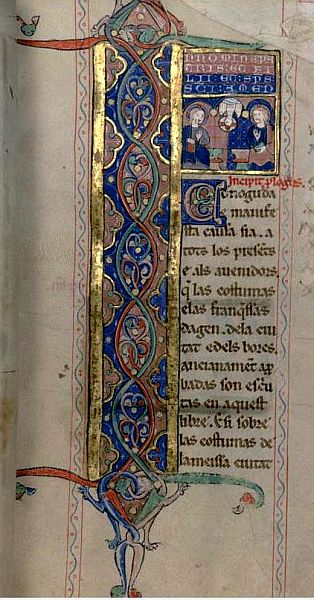 NNOMINE PA
TRIS: ET FI
LII: ET: SPS
SCI: AMEN
Incipit plogus.
Conoguda
e manife
sta causa sia. a
tots los presents
e als auenidors
q las costumas
e las franqsas
dagen. dela ciu
tat e dels bores.
ancianament
badas son escri
tas en aquest
libre. Esi sobre
las costumas de
la meissa ciutat